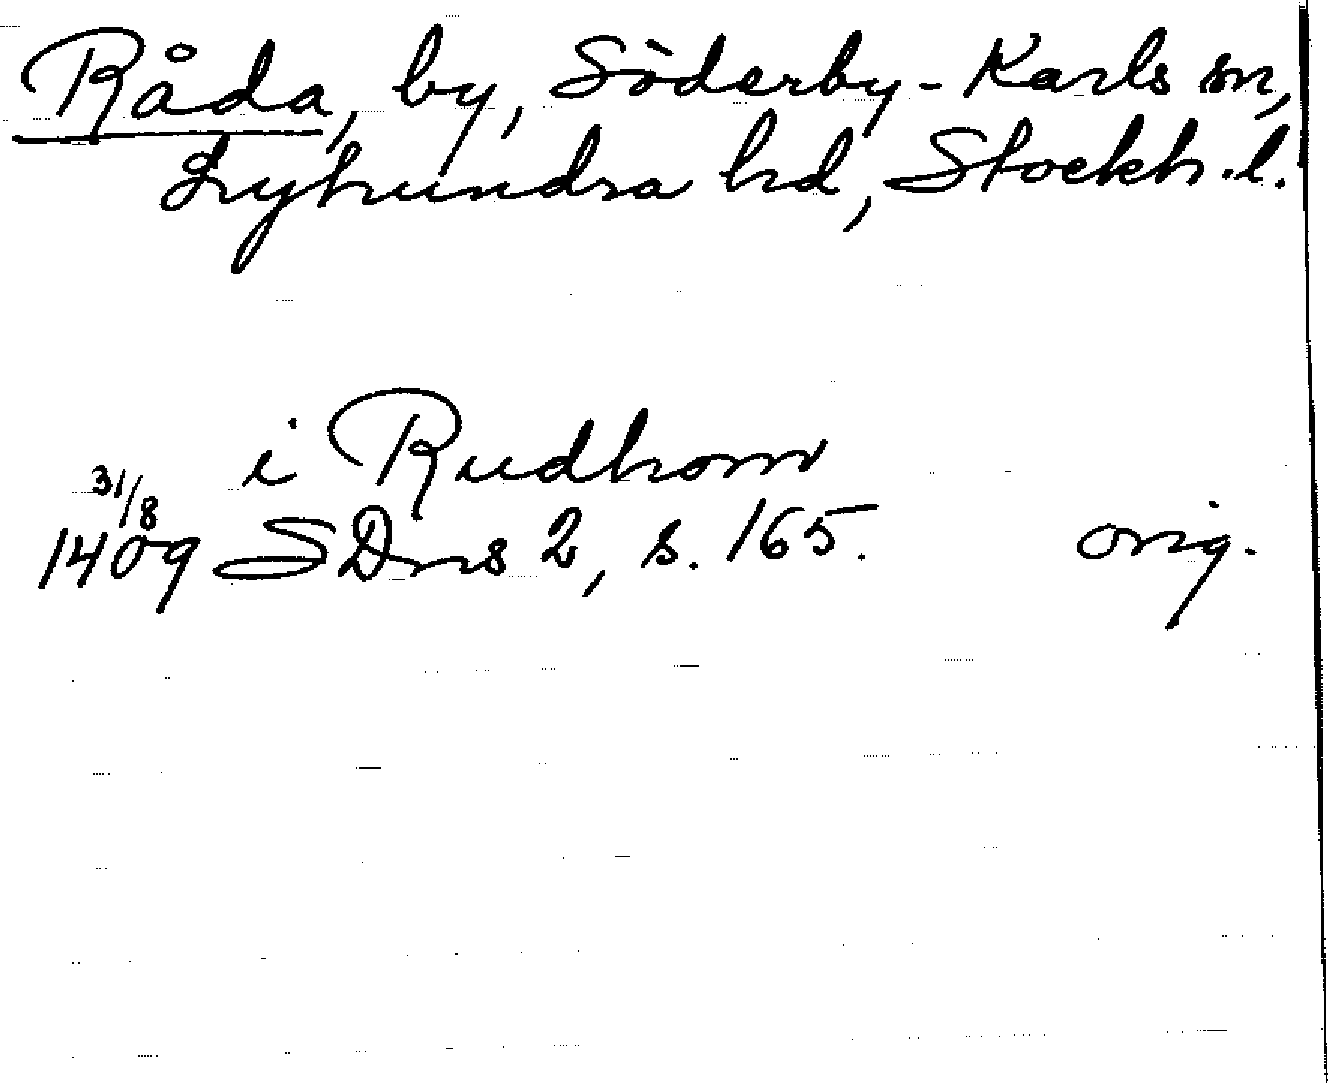 Råda, by, Söderby-Karls sn,
Lyhundra hd, Stockh. l.
i Rudhom
31/8
1409 SDns 2, s. 165. orig.